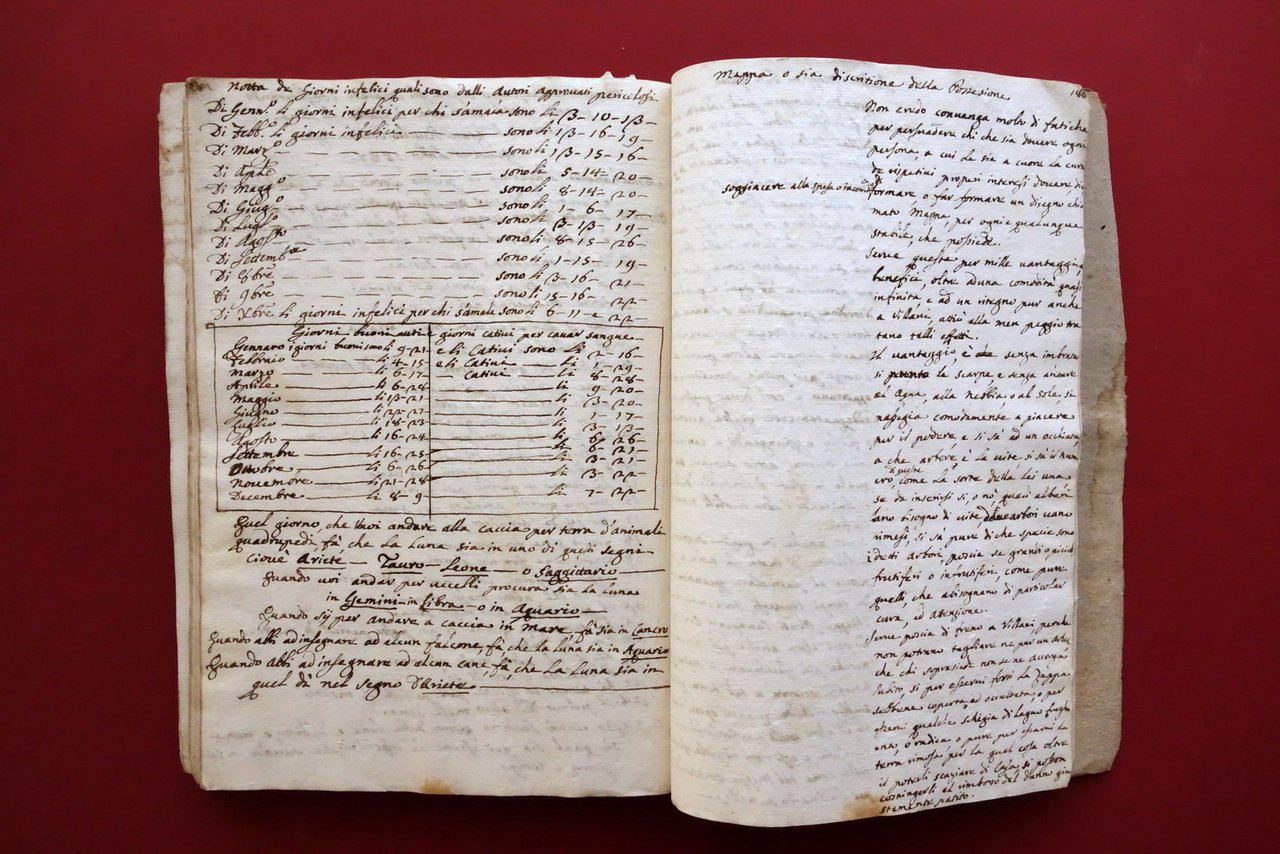 Notta de Giorni infelici quali sono dalli Autori approvati pericolosi
Di Genn.o li giorni infelici per chi s'amala sono li 3-10-13-
Di Febb.o li giorni infelici — sono li 13-16-19-
Di Marz.o — sono li 13-15-16-
Di Aple — sono li 5-14-20-
Di Magg.o — sono li 8-14-20-
Di Giug.o — sono li 1-6-17-
Di Lug.o — sono li 3-13-19-
Di Agosto — sono li 8-15-26
Di Settembre — sono li 1-15-19-
Di 8bre — sono li 3-16-21-
Di 9bre — sono li 15-16-22-
Di Xbre li giorni infelici per chi s'amala sono li 6-11-e 22-
Giorni buoni giorni cativi per cavar sangue
Gennaro i giorni buoni sono li 9-21- e li Cativi sono li 2-16-
Febbraio — li 4-15- e li Cativi — li 1-29-
Marzo — li 6-17- Cativi — li 8-28-
Aprile — li 6-28- li 9-20-
Maggio — li 13-21- li 3-20-
Giugno — li 22-27- li 1-17-
Luglio — li 18-23- li 3-13-
Agosto — li 16-24- li 6-26-
Settembre — li 16-25- li 6-21-
Ottobre — li 6-26- li 3-21-
Novembre — li 21-28- li 3-22-
Decembre — li 8-9- li 7-22-
Quel giorno che vuoi andare alla caccia per terra d'animali
quadrupedi, fà, che la Luna sia in uno di questi segni
cioue Ariete — Tauro — Leone — o Saggittario —
Quando voi andar per uccelli procura sia la luna
in Gemini-in Libra-o in Aquario-
Quando sij per andare a caccia in Mare, fà sia in Cancro
Quando abbi ad insegnare ad alcun falcone, fà, che la luna sia in Aquario
Quando Abbi ad insegnare ad alcun cane, fà, che la Luna sia in
quel dì nel segno d'Ariete
Mappa o sia discritione della Possesione
Non credo convenga molto di fatiche
per persuadere chi che sia dovere ogni
persona, a cui le sia a cuore la cura
de rispetivi propri interesi dovare di
soggiacere alla spesa
formare, o far formare un disegno chia
mato Mappa, per ogni e qualunque
stabile, che possiede.
Serve questa per mille vantaggi e
benefici, oltre ad una comodità quasi
infinita e ad un ritegno pur anche
a Villani, acciò alla men peggio tra
tano talli effetti.
Il vantaggio, è che senza imbraca
si le scarpe, e senza andare
al Aqua, alla Nebbia o al Sole, si
passegia comodamente a piacere
per il podere e si sà ad un occhiata
a che arbore è la vite si sà il num
ero, come la sorte della lei uva
se da inserirsi si, o nò, quali alberi
lano bisogno di vite arbori vano
rimessi, si sà pure di che specie sono
i detti arbori poscia se grandi o piccioli
frutiferi o infrutiferi, come pure
quelli, che abisognano di particolar
cura, ed attenzione.
Serve poscia di freno a Villani, perchè
non potrano tagliare ne pur un arbore
che chi soprasiede non se ne accorga
subito, si per esservi forsi la Zappa
sebbene coperta ed occultata, o per
esservi qualche schegia di legno
o radica o pure per esservi la
terra rimossa per la qual cosa oltre
il poterli scaziare di Casa si possono
costringerli al rimborso del danno giu
stamente patito.